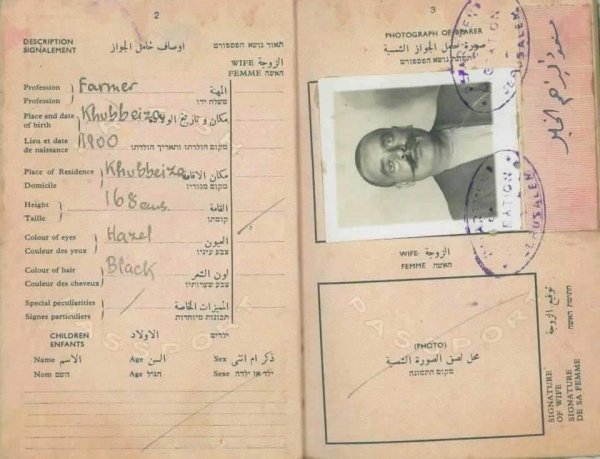 2
DESCRIPTION
SIGNALEMENT
اوصاف حامل الجواز
תאור נושא הפספורט
WIFE الزوجة
FEMME האשה
Profession
Profession
Farmer
المهنة
משלח ידו
Place and date
of birth
Khubbeiza
مكان و تاريخ الولادة
Lieu et date
de naissance
1900
מקום הולדתו ותאריך הולדתו
Place of Residence
Domicile
Khubbeiza
مكان الاقامة
מקום מגוריו
Height
Taille
168 cms.
القامة
קומתו
Colour of eyes
Couleur des yeux
Hazel
العيون
צבע עיניו
Colour of hair
Couleur des cheveux
Black
لون الشعر
צבע שערותיו
Special peculiarities
Signes particuliers
المميزات الخاصة
תכונות מיוחדות
CHILDREN الاولاد ילדים
ENFANTS
Name الاسم Age السن Sex ذكر ام انثى
Nom השם Age הגיל Sexe ילד או ילדה
3
PHOTOGRAPH OF BEARER
صورة حامل الجواز الشمسية
תמונת נושא הפספורט
IMMIGRATION
JERUSALEM
JERUSALEM
WIFE الزوجة
FEMME האשה
(PHOTO)
محل لصق الصورة الشمسية
מקום התמונה
PASSPORT
توقيع الزوجة
חתימת האשה
SIGNATURE
OF WIFE
SIGNATURE
DE SA FEMME